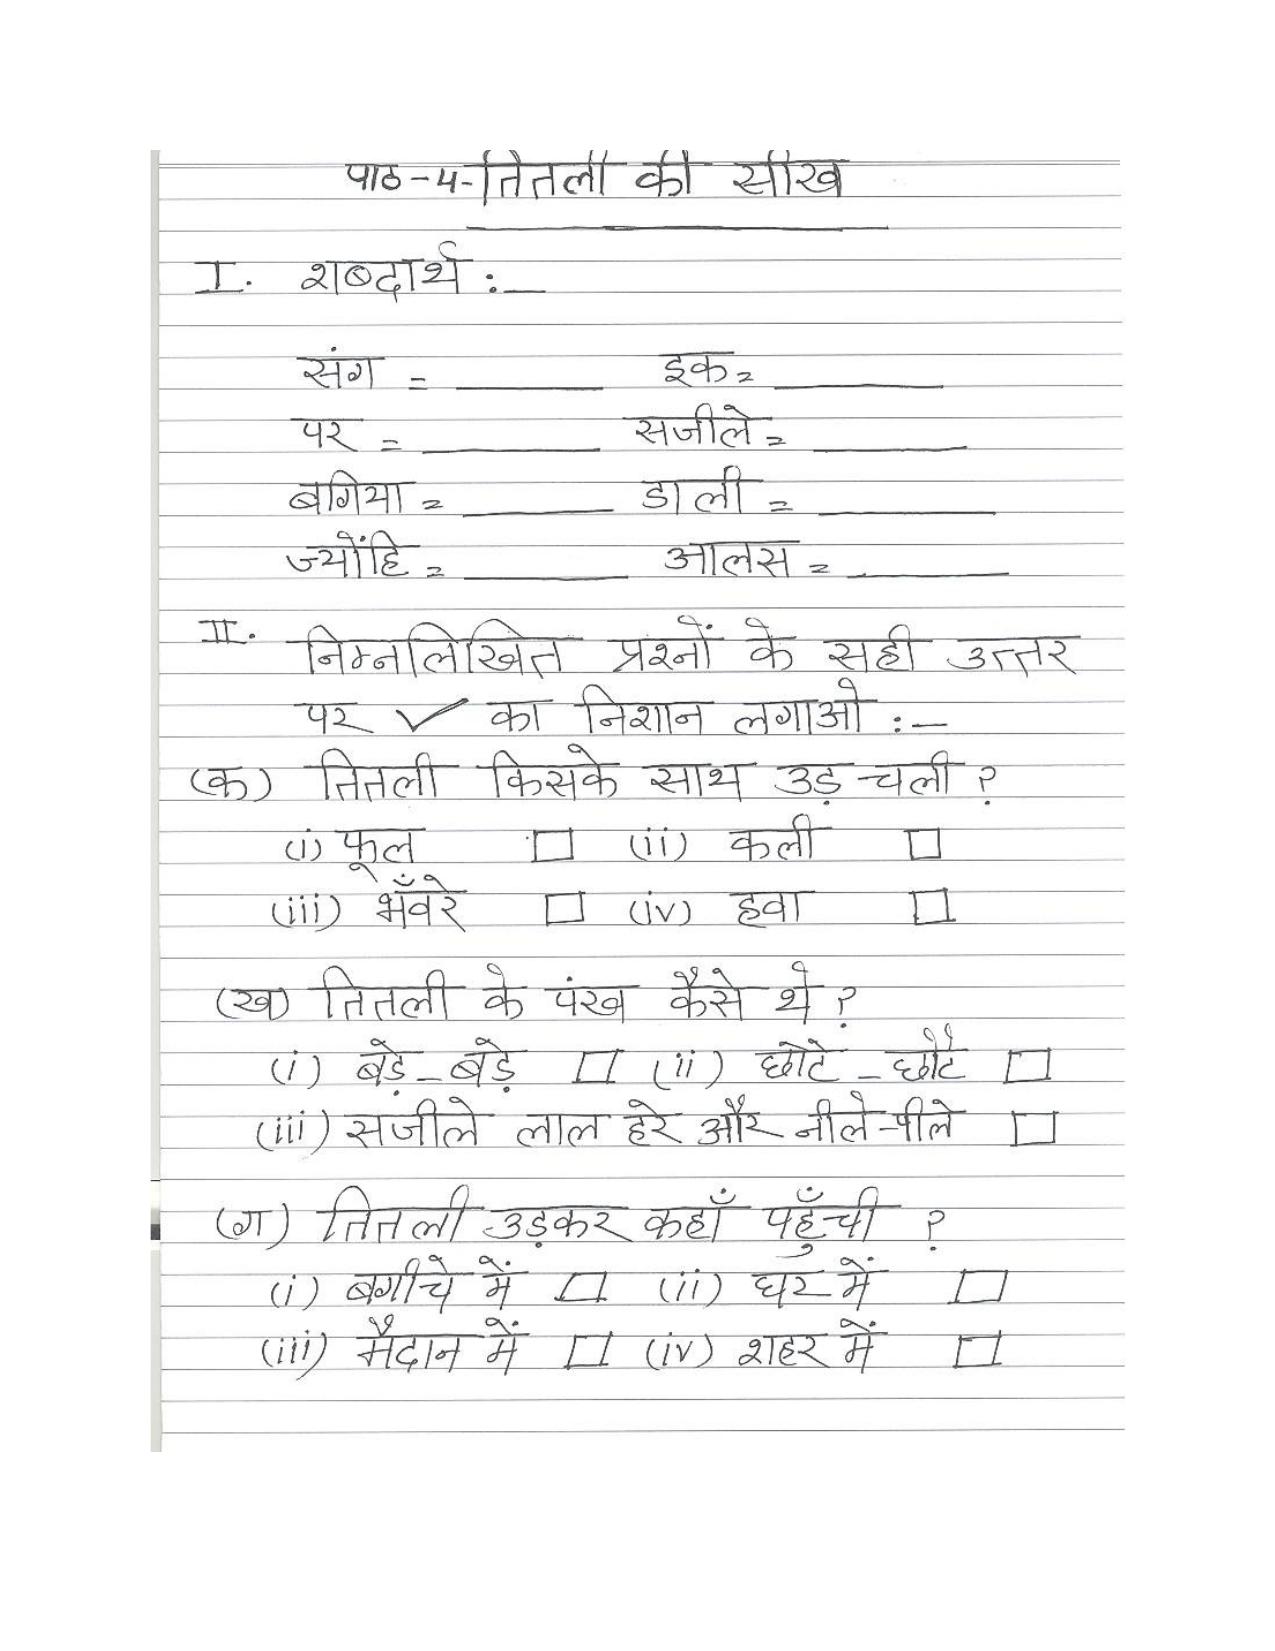 पाठ-4-तितली की सीख
I. शब्दार्थ :—
संग = ______ इक = ______
पर = ______ सजीले = ______
बगिया = ______ डाली = ______
ज्योंहि = ______ आलस = ______
II. निम्नलिखित प्रश्नों के सही उत्तर
पर ✓ का निशान लगाओ :—
(क) तितली किसके साथ उड़ चली ?
(i) फूल □ (ii) कली □
(iii) भँवरे □ (iv) हवा □
(ख) तितली के पंख कैसे थे ?
(i) बड़े-बड़े □ (ii) छोटे-छोटे □
(iii) सजीले लाल हरे और नीले-पीले □
(ग) तितली उड़कर कहाँ पहुँची ?
(i) बगीचे में □ (ii) घर में □
(iii) मैदान में □ (iv) शहर में □